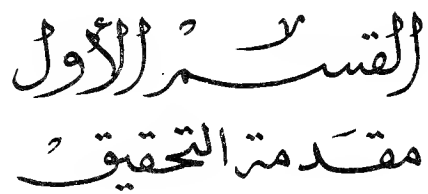 القسم الأول
مقدمة التحقيق